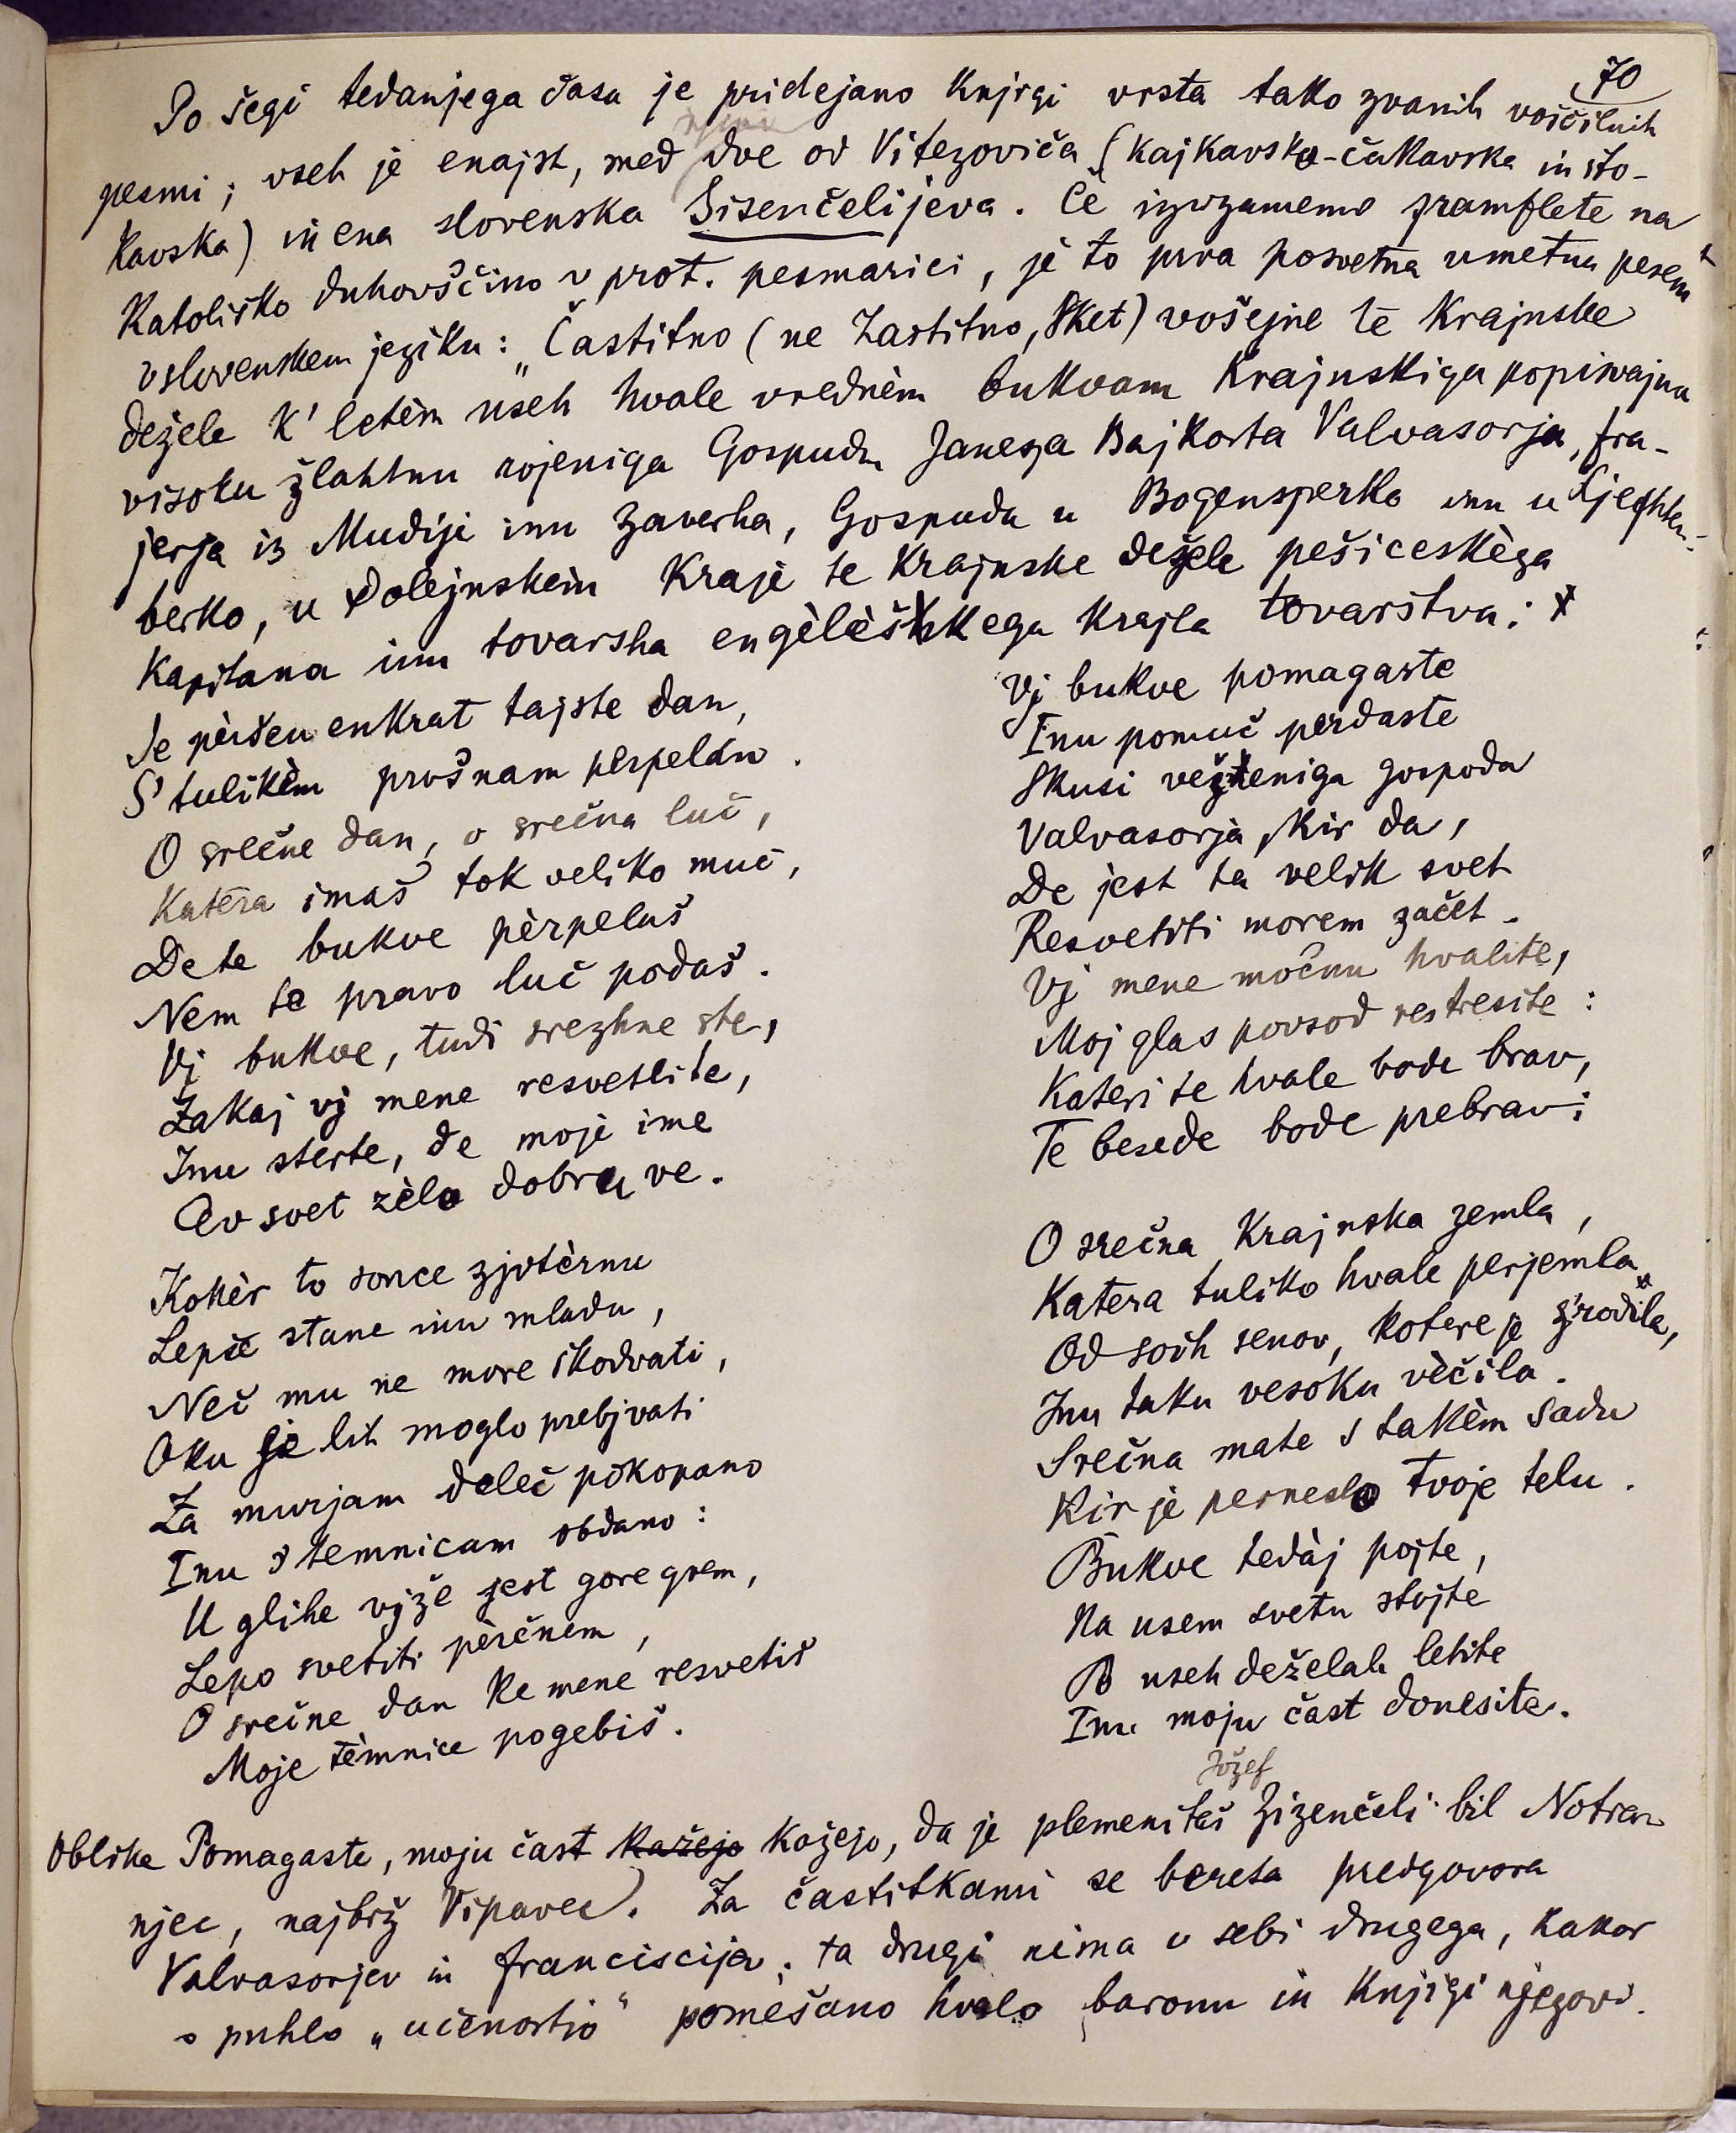 70
Po šegi tedanjega časa je pridejano knjigi vrsta tako zvanih voščilnih
pesmi; vseh je enajst, med njimi dve od Vitezoviča (kajkavsko-čakavska in što-
kavska) in ena slovenska Sisenčelijeva. Če izvzamemo pamflete na
katoliško duhovščino v prot. pesmarici, je to prva posvetna umetna pesem
v slovenskem jeziku: „Častitno (ne Zastitno, Sket) vošejne te Krajnske
dežele k' letèm useh hvale vrednèm bukvam Krajnskiga popisvajna
visoku žlahtnu rojeniga Gospuda Janeza Bajkarta Valvasorja, fra-
jerja is Mudije inu Zaverha, Gospuda u Bogensperko inu u Ljeghten-
berko, u Dolejnskem Kraje te Krajnske dežele pešiceskèga
Kapitana inu tovarsha engèlèškega krajla tovarstva:
Je pèršeu enkrat tajste dan,
S' tulikèm prošnam perpelan.
O srečne dan, o srečna luč,
Katera imaš tok veliko muč,
De te bukve pèrpelaš
Nem te pravo luč podaš.
Vj bukve, tudi srezhne ste,
Zakaj vj mene resvetlite,
Inu sterte, de moje ime
Cev svet zèlo dobru ve.
Kokèr to sonce zjutèrnu
Lepše stane inu mladu,
Neč mu ne more škodvati,
Oku je lih moglo prebjvati
Za murjam deleč pokopano
Inu s temnicam obdano:
U glihe vjže jest gore grem,
Lepo svetiti pèrčnem,
O srečne dan ke mene resvetiš
Moje tèmnice pogebiš.
Vj bukve pomagaste
Inu pomuč perdaste
Skusi vešteniga gospoda
Valvasorja, kir da,
De jest ta velik svet
Resvetiti morem začet.
Vj mene močnu hvalite,
Moj glas povsod restresite:
Kateri te hvale bode brav,
Te besede bode prebrav:
O srečna Krajnska zemla,
Katera tuliko hvale perjemla
Od soih senov, kotere je s'rodila,
Inu taku vesoku vèčila.
Srečna mate s takèm sadu
Kir je perneslo tvoje telu.
Bukve tedàj pojte,
Na usem svetu stojte
Po useh deželah letite
Inu moju čast donesite.
Jožef
Oblike Pomagaste, moju čast kažejo kažejo, da je plemenitaš Zizenčeli bil Notran-
njec, najbrž Vipavec. Za častitkami se bereta predgovora
Valvasorjev in Franciscijev; ta drugi nima v sebi drugega, kakor
s puhlo „učenostjo“ pomešano hvalo baronu in knjigi njegovi.